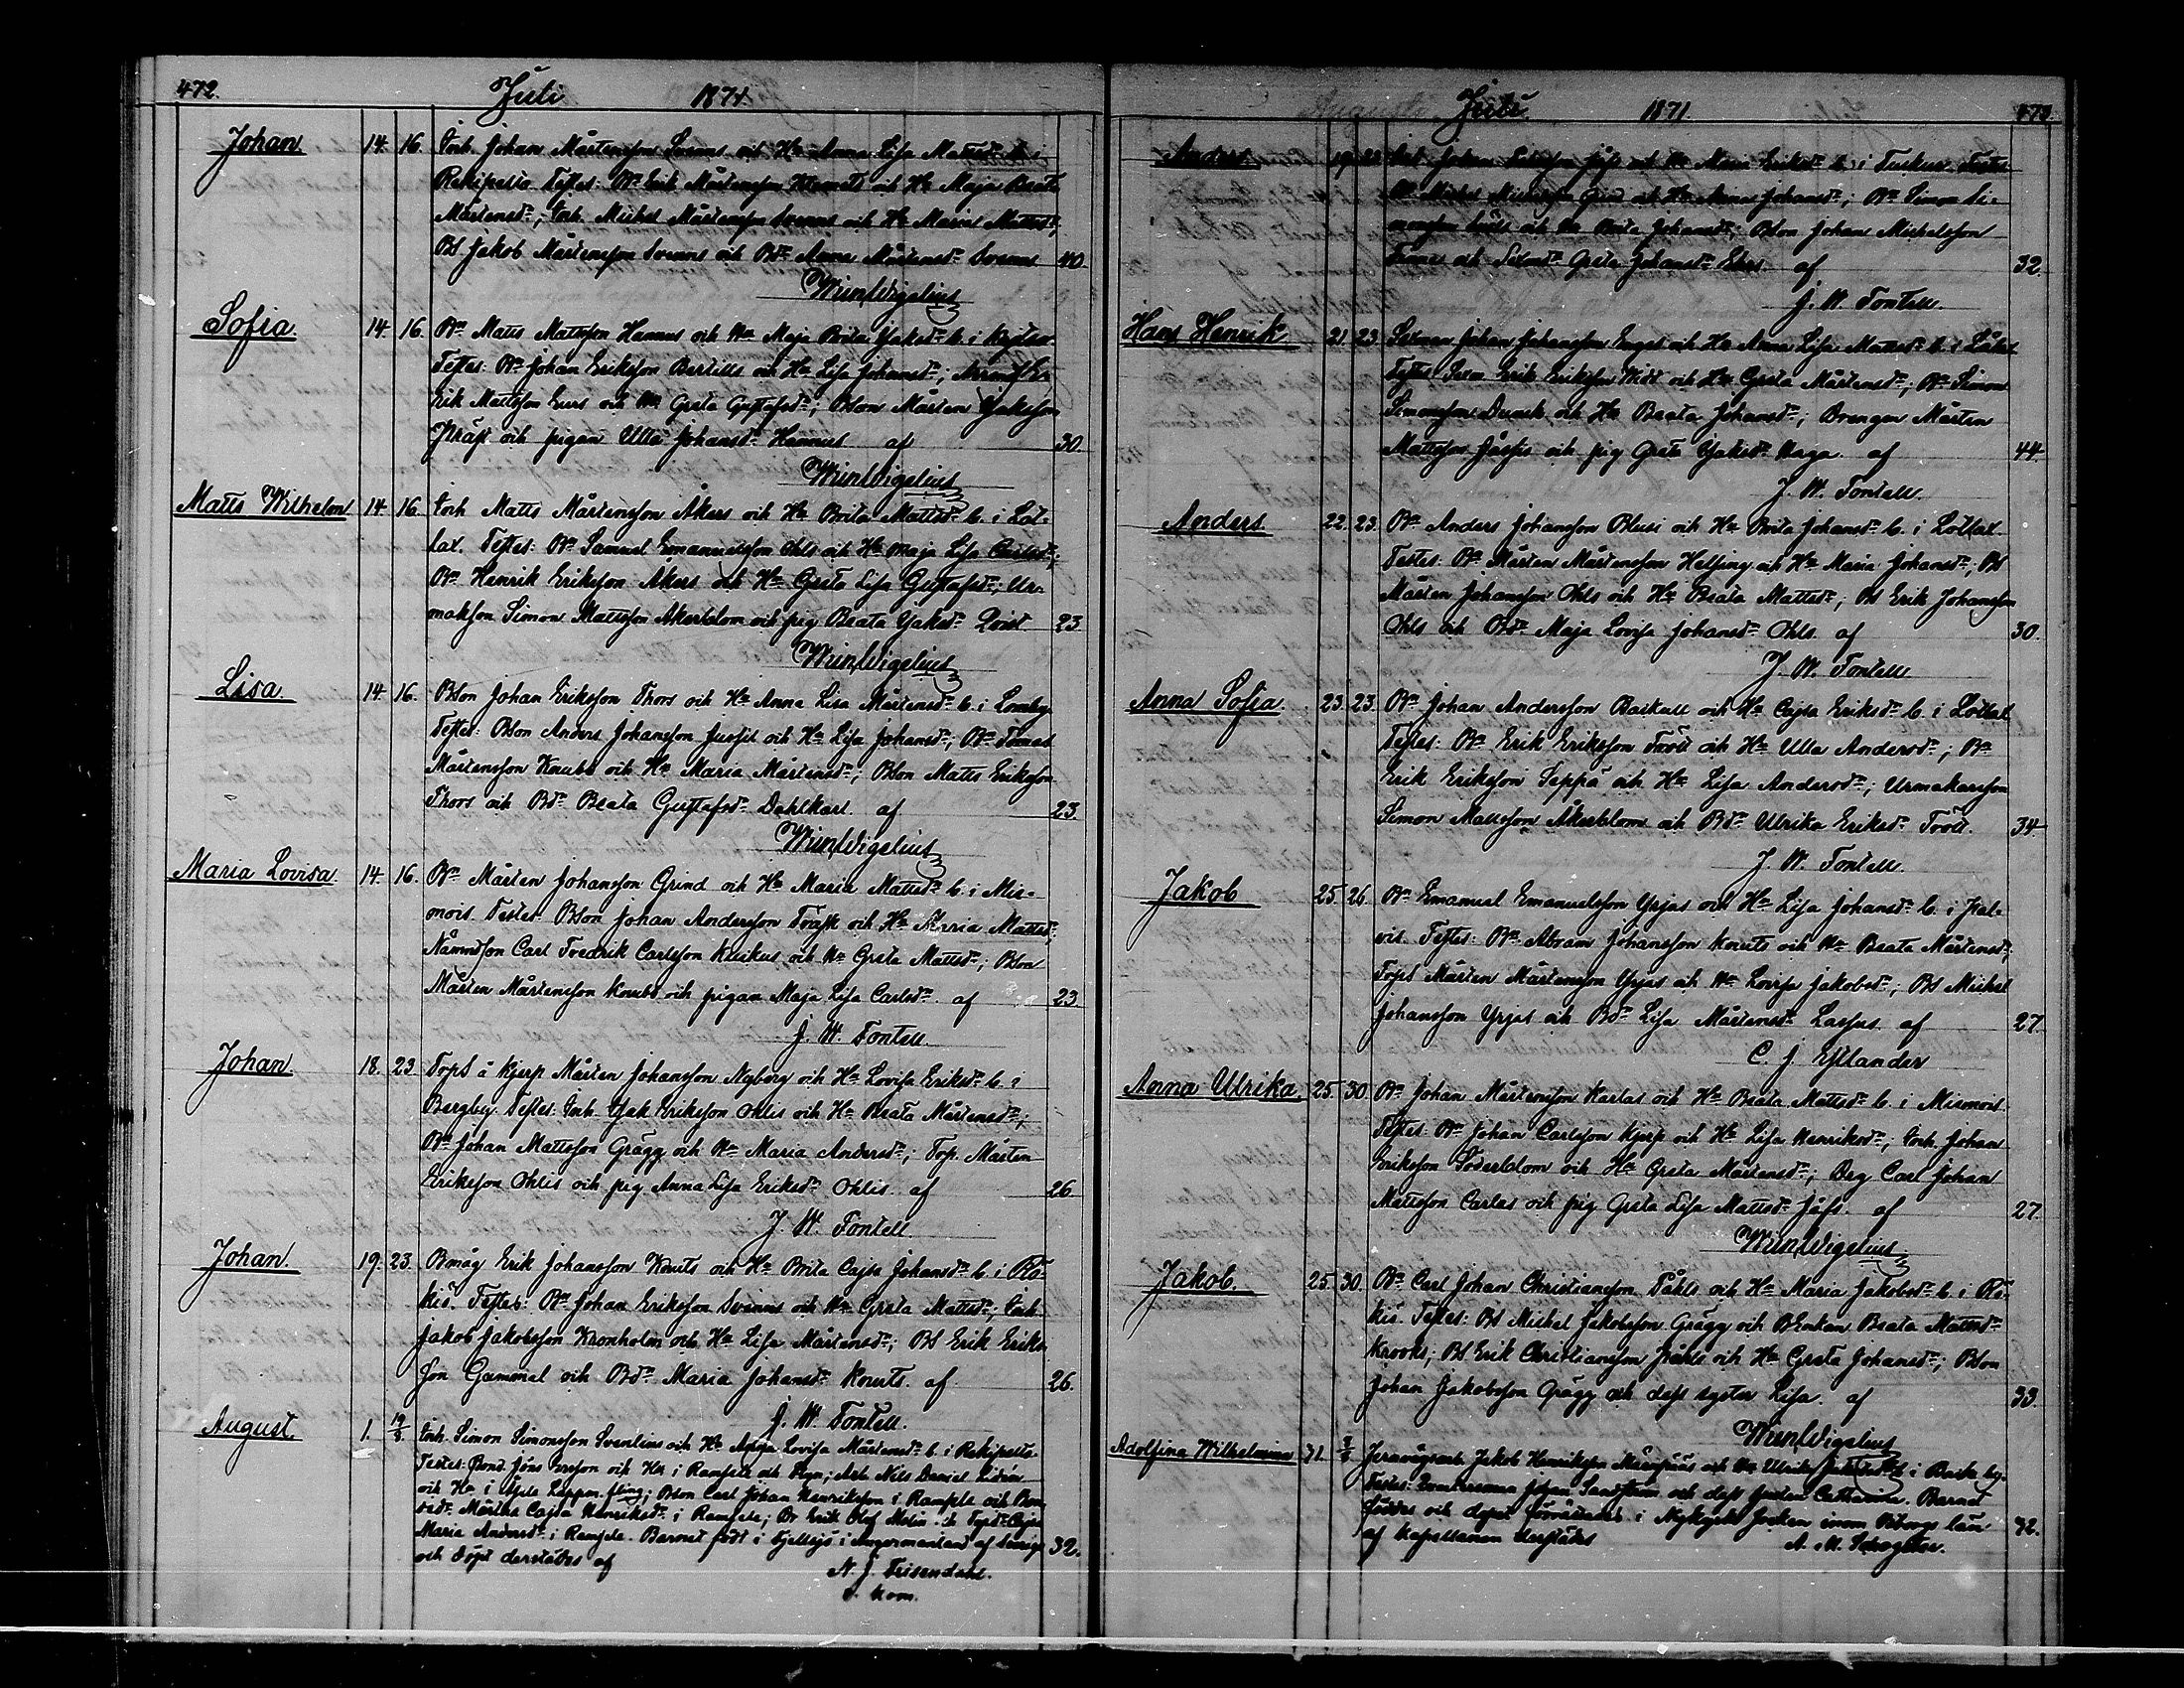 472. Juli 1871.
Johan 14. 16. Inh. Johan Mårtensson Svenns och Hu Anna Lisa Mattsdr b. i
Rekipelto. Testes: Bn Erik Mårtensson och Hu Maja Beata
Mårtensdr; Inh. Michel Mårtensson Svenns och Hu Maria Mattsdr;
Bs Jakob Mårtensson Svenns och Bdr Anna Mårtensdr Svenns 40.
Wm Wigelius
Sofia. 14. 16. Bn Matts Mattsson Hannus och Hu Maja Brita Isaksdr b. i
Testes: Bn Johan Eriksson Bertills och Hu Lisa Johansdr;
Erik Mattsson och Hu Greta Gustafsdr; Bson Mårten Isaksson
och pigan Ulla Johansdr Hannus af 30.
Wm Wigelius
Matts Wilhelm 14. 16. Inh Matts Mårtensson Åkers och Hu Brita Mattsdr b. i Lot-
lax. Testes: Bn Samuel Emanuelsson Ohls och Hu Maja Lisa Carlsdr;
Bn Henrik Eriksson Åkers och Hu Greta Lisa Gustafsdr; Ur-
makson Simon Mattsson Åkerblom och pig Beata Isaksdr 23
Wm Wigelius
Lisa. 14. 16. Bson Johan Eriksson Thors och Hu Anna Lisa Mårtensdr b. i Lomby.
Testes: Bson Anders Johansson Jussil och Hu Lisa Johansdr; Bn Tomas
Mårtensson Knubb och Hu Maria Mårtensdr; Bson Matts Eriksson
Thors och Bdr Beata Gustafsdr Dahlkarl. af 23.
Wm Wigelius
Maria Lovisa. 14. 16. Bn Mårten Johansson Grind och Hu Maria Mattsdr b. i Mis-
mois. Testes: Bson Johan Andersson Träsk och Hu Maria Mattsdr;
Nämndson Carl Fredrik Carlsson och Hu Greta Mattsdr; Bson
Mårten Mårtensson Knubb och pigan Maja Lisa Carlsdr af 23
J. W. Fontell.
Johan. 18. 23 Torps å Kjerp Mårten Johansson Nyberg och Hu Lovisa Eriksdr b. i
Bergby. Testes: Inh. Isak Eriksson Ohlis och Hu Beata Mårtensdr;
Bn Johan Mattsson Grägg och Hu Maria Andersdr; Torp. Mårten
Eriksson Ohlis och pig Anna Lisa Eriksdr Ohlis af 26
J. W. Fontell
Johan. 19. 23. Bmåg Erik Johansson Knuts och Hu Brita Cajsa Johansdr b. i Rö-
kis. Testes: Bn Johan Eriksson Svenns och Hu Greta Mattsdr; Inh.
Jakob Jakobsson Kronholm och Hu Lisa Mårtensdr; Bs Erik Eriks-
son Gammal och Bdr Maria Johansdr Knuts. af 26.
J. W. Fontell.
August. 1. 19/8. Inh. Simon Simonsson Svenlins och Hu Anna Lovisa Mårtensdr b. i Rekipelto.
Testes: Bond. Jöns Ersson och Hu i Ramsele och Arb. Nils Daniel Lidén
och Hu i Lappm. Bson Carl Johan Henriksson i Ramsele och Bon-
dedr Märtha Cajsa Henriksdr i Ramsele; Dr Erik Olof Molin och Cajsa
Maria Andersdr i Ramsele. Barnet född i Fjellsjö i Ångermanland af Sverige 32.
och döpt derstädes af N. J. Frisendahl.
v. kom.
Juli. 1871. 473.
Anders 19. 23. Johan och Hu Maria Eriksdr b. i Testes:
Bn Michel Mickelsson Grind och Hu Anna Johansdr; Bn Simon Si-
monsson och Hu Brita Johansdr; Bson Johan Michelsson
och Greta Johansdr af 32.
J. W. Fontell.
Hans Henrik 21. 23. Sexman Johan Johansson och Hu Anna Lisa Mattsdr b. i
Testes: Erik Eriksson och Hu Greta Mårtensdr; Bn Simon
Simonsson och Hu Beata Johansdr; Drengen Mårten
Mattsson och pig Greta Isaksdr Haga. af 44.
J. W. Fontell.
Anders. 22. 23. Bn Anders Johansson Blusi och Hu Brita Johansdr b. i Lottax.
Testes: Bn Mårten Mårtensson Helsing och Hu Maria Johansdr; Bs
Mårten Johansson Ohls och Hu Beata Mattsdr; Bs Erik Johansson
Ohls och Bdr Maja Lovisa Johansdr Ohls. af 30.
J. W. Fontell
Anna Sofia. 23. 23. Bn Johan Andersson Backull och Hu Cajsa Eriksdr b. i Lottax
Testes: Bn Erik Eriksson Tröit och Hu Ulla Andersdr; Bn
Erik Eriksson Seppä och Hu Lisa Andersdr; Urmakarson
Simon Mattsson Åkerblom och Bdr Ulrika Eriksdr Tröit. 34
J. W. Fontell.
Jakob 25. 26. Bn Emanuel Emanuelsson Yrjas och Hu Lisa Johansdr b. i
Testes: Bn Abram Johansson Knuts och Hu Beata Mårtensdr;
Torps Mårten Mårtensson Yrjas och Hu Lovisa Jakobsdr; Bs Michel
Johansson Yrjas och Bdr Lisa Mårtensdr Lassus af 27.
C. J. Estlander
Anna Ulrika. 25. 30. Bn Johan Mårtensson Karlas och Hu Beata Mattsdr b. i Mismois.
Testes: Bn Johan Carlsson Kjerp och Hu Lisa Henriksdr; Inh. Johan
Eriksson Söderblom och Hu Greta Mårtensdr; Dreg Carl Johan
Mattsson Carlas och pig Greta Lisa Mattsdr Jåfs. af 27.
Wm Wigelius
Jakob. 25. 30. Bn Carl Johan Christiansson Påhls och Hu Maria Jakobsdr b. i Rö-
kis. Testes: Bs Mickel Jakobsson Grägg och BEnkan Beata Mattsdr
Krooks; Bs Erik Christiansson Påhls och Hu Greta Johansdr; Bson
Johan Jakobsson Grägg och dess syster Lisa. af 33.
Wm Wigelius
Adolfina Wilhelmina 31. Jernvägsarb. Jakob Henriksson och Hu Ulrika b. i by.
Testes: Johan Sandström och dess Catharina. Barnet
föddes och döptes i Nykyrka Socken inom Viborgs län 32.
af Kapellanen derstädes